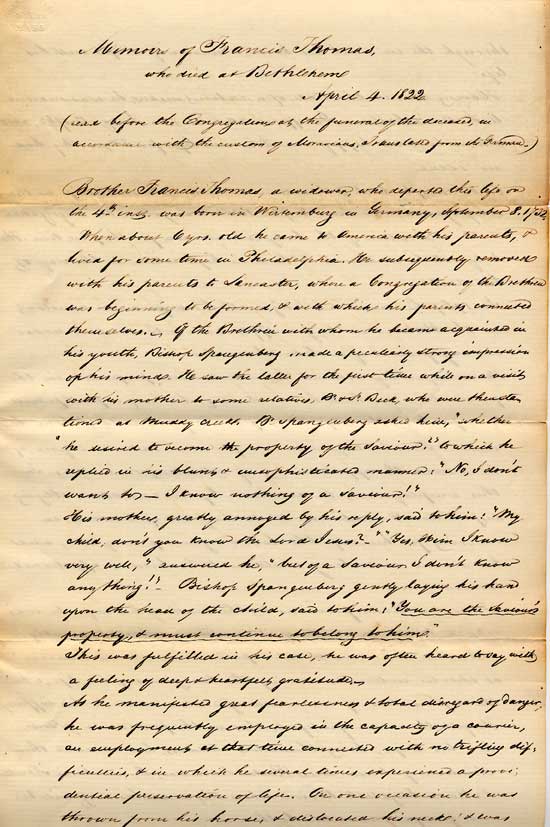 Memoirs of Francis Thomas,
who died at Bethlehem
April 4. 1822
(read before the Congregation at the funeral of the deceased, in
accordance with the custom of Moravians, Translated from the German.)
Brother Francis Thomas, a widower, who departed this life on
the 4th inst, was born in Wirtemburg in Germany, September 8. 1732
When about 6 yrs. old he came to America with his parents, &
lived for some time in Philadelphia. He subsequently removed
with his parents to Lancaster, where a Congregation of the Brethren
was beginning to be formed, & with which his parents connected
themselves. Of the Brethren with whom he became acquainted in
his youth, Bishop Spangenberg made a peculiarly strong impression
on his mind. He saw the latter for the first time while on a visit
with his mother to some relatives, Br. & Sr. Beck, who were then sta-
tioned at Muddy Creek. Br. Spangenberg asked him, "whether
"he desired to become the property of the Saviour?" to which he
replied in his blunt & unsophisticated manner: "No, I don't
want to — I know nothing of a Saviour!"
His mother, greatly annoyed by his reply, said to him: "My
child, don't you know the Lord Jesus?" — "Yes, Him I know
very well," answered he, "but of a Saviour I don't know
anything!" — Bishop Spangenberg gently laying his hand
upon the head of the child, said to him: "You are the Saviour's
property, & must continue to belong to him."
This was fulfilled in his case, he was often heard to say with
a feeling of deep & heartfelt gratitude. —
As he manifested great fearlessness & total disregard of danger,
he was frequently employed in the capacity of a courier,
an employment at that time connected with no trifling dif-
ficulties, & in which he several times experienced a provi-
dential preservation of life. On one occasion he was
thrown from his horse, & dislocated his neck; & was